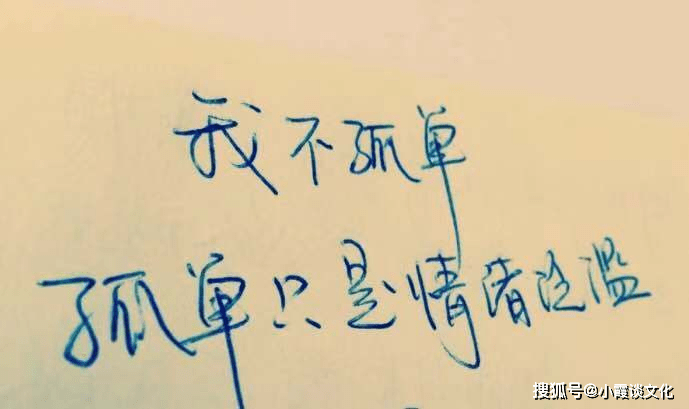 我不孤单
孤单只是情绪泛滥
搜狐号@小霞谈文化